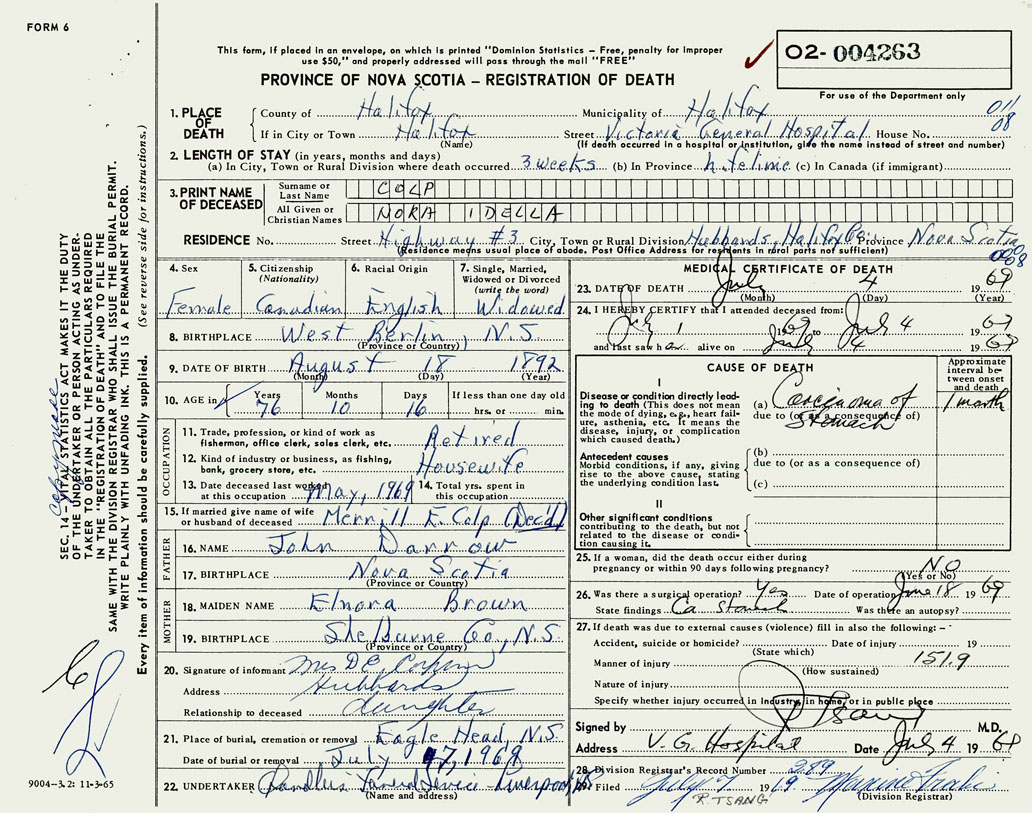 FORM 6
This form, if placed in an envelope, on which is printed "Dominion Statistics – Free, penalty for improper
use $50," and properly addressed will pass through the mail "FREE"
PROVINCE OF NOVA SCOTIA – REGISTRATION OF DEATH
02- 004263
For use of the Department only
011
08
1. PLACE OF DEATH
County of Halifax Municipality of Halifax
If in City or Town Halifax Street Victoria General Hospital House No.
(Name) (If death occurred in a hospital or institution, give the name instead of street and number)
2. LENGTH OF STAY (in years, months and days)
(a) In City, Town or Rural Division where death occurred 3 weeks (b) In Province lifetime (c) In Canada (if immigrant)
3. PRINT NAME OF DECEASED
Surname or Last Name COLP
All Given or Christian Names NORA IDELLA
RESIDENCE No. Street Highway #3 City, Town or Rural Division Hubbards, Halifax Co. Province Nova Scotia
(Residence means usual place of abode. Post Office Address for residents in rural parts not sufficient)
4. Sex Female
5. Citizenship (Nationality) Canadian
6. Racial Origin English
7. Single, Married, Widowed or Divorced (write the word) Widowed
8. BIRTHPLACE West Berlin, N.S.
(Province or Country)
9. DATE OF BIRTH August 18 1892
(Month) (Day) (Year)
10. AGE in Years 76 Months 10 Days 16 If less than one day old
hrs. or min.
OCCUPATION
11. Trade, profession, or kind of work as
fisherman, office clerk, sales clerk, etc. Retired
12. Kind of industry or business, as fishing,
bank, grocery store, etc. Housewife
13. Date deceased last worked
at this occupation May, 1969
14. Total yrs. spent in
this occupation
15. If married give name of wife
or husband of deceased Merrill E. Colp (Dec'd)
FATHER
16. NAME John Darrow
17. BIRTHPLACE Nova Scotia
(Province or Country)
MOTHER
18. MAIDEN NAME Elnora Brown
19. BIRTHPLACE Shelburne Co., N.S.
(Province or Country)
20. Signature of informant Mrs D E
Address Hubbards
Relationship to deceased daughter
21. Place of burial, cremation or removal Eagle Head, N.S.
Date of burial or removal July 7, 1969
22. UNDERTAKER Funeral Service - Liverpool
(Name and address)
MEDICAL CERTIFICATE OF DEATH
23. DATE OF DEATH July 4 1969
(Month) (Day) (Year)
24. I HEREBY CERTIFY that I attended deceased from:
July 1 1969 to July 4 1969
and last saw her alive on July 4 1969
CAUSE OF DEATH
Approximate interval between onset and death
I
Disease or condition directly leading to death (This does not
mean the mode of dying, e.g., heart failure, asthenia, etc. It means the
disease, injury, or complication
which caused death.)
(a) Carcinoma of Stomach 1 month
due to (or as a consequence of)
Antecedent causes
Morbid conditions, if any, giving
rise to the above cause, stating
the underlying condition last.
(b)
due to (or as a consequence of)
(c)
II
Other significant conditions
contributing to the death, but not
related to the disease or condition causing it.
25. If a woman, did the death occur either during
pregnancy or within 90 days following pregnancy? NO
(Yes or No)
26. Was there a surgical operation? Yes Date of operation June 18 1969
State findings Ca stomach Was there an autopsy?
27. If death was due to external causes (violence) fill in also the following: –
Accident, suicide or homicide? Date of injury 19
(State which) 151.9
Manner of injury
(How sustained)
Nature of injury
Specify whether injury occurred in Industry, in home, or in public place
Signed by R Tsang M.D.
Address V.G. Hospital Date July 4 1969
28. Division Registrar's Record Number 289
29. Filed July 7 1969
(Division Registrar)
R. TSANG
SEC. 14 – VITAL STATISTICS ACT MAKES IT THE DUTY
OF THE UNDERTAKER OR PERSON ACTING AS UNDERTAKER TO OBTAIN ALL THE PARTICULARS REQUIRED
IN THE "REGISTRATION OF DEATH" AND TO FILE THE
SAME WITH THE DIVISION REGISTRAR WHO SHALL ISSUE THE BURIAL PERMIT.
WRITE PLAINLY WITH UNFADING INK. THIS IS A PERMANENT RECORD.
Every item of information should be carefully supplied. (See reverse side for instructions.)
9004-3.2: 11-3-65